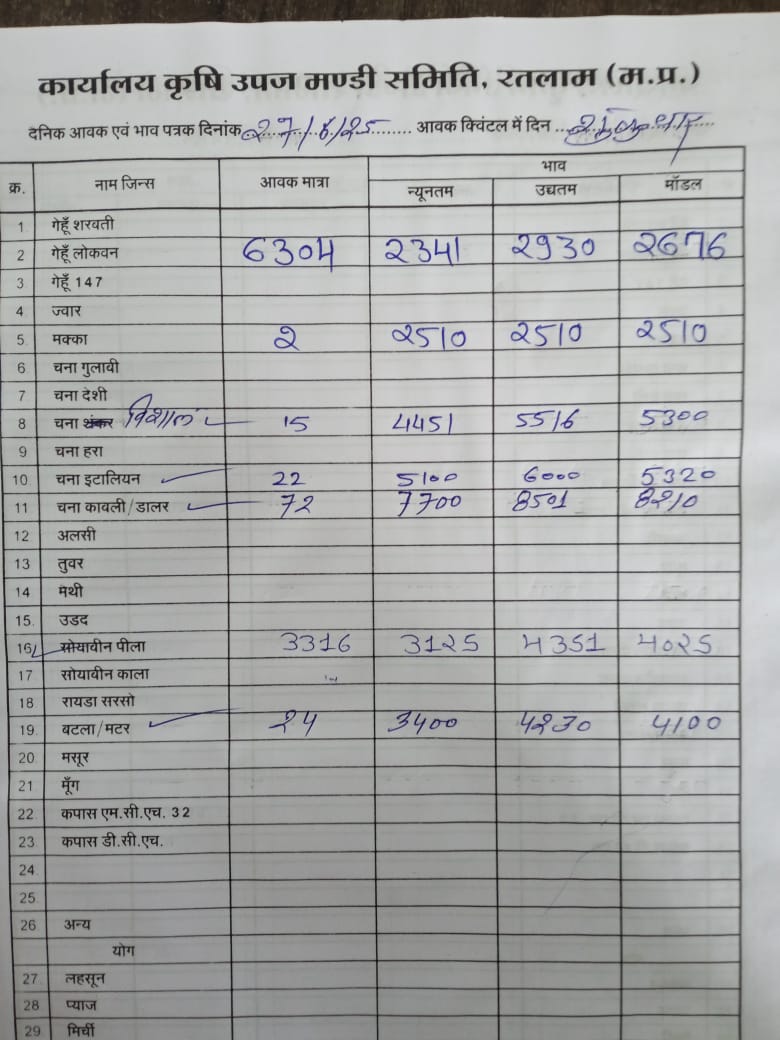 कार्यालय कृषि उपज मण्डी समिति, रतलाम (म.प्र.)
दैनिक आवक एवं भाव पत्रक दिनांक 27/6/25 आवक क्विंटल में दिन
क्र. नाम जिन्स आवक मात्रा भाव
न्यूनतम उच्चतम मॉडल
1 गेहूँ शरवती
2 गेहूँ लोकवन 6304 2341 2930 2676
3 गेहूँ 147
4 ज्वार
5. मक्का 2 2510 2510 2510
6 चना गुलावी
7 चना देशी
8 चना शंकर विशाल 15 4451 5516 5300
9 चना हरा
10. चना इटालियन 22 5100 6000 5320
11 चना कावली/डालर 72 7700 8501 8210
12 अलसी
13 तुवर
14 मेथी
15. उडद
16 सोयावीन पीला 3316 3125 4351 4025
17 सोयावीन काला
18 रायडा सरसो
19. बटला/मटर 24 3400 4230 4100
20. मसूर
21. मूँग
22. कपास एम.सी.एच. 32
23. कपास डी.सी.एच.
24.
25.
26. अन्य
योग
27 लहसून
28 प्याज
29 मिर्ची